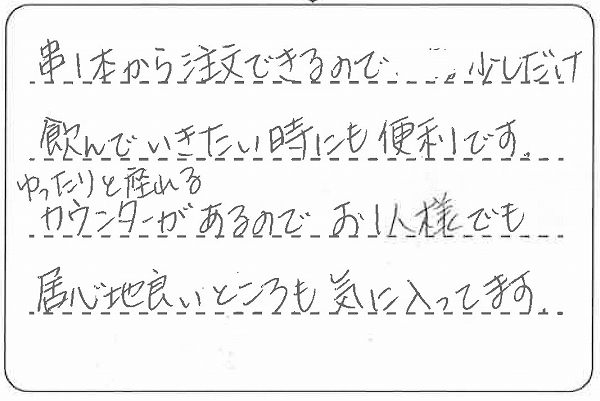 串1本から注文できるので、少しだけ
飲んでいきたい時にも便利です。
ゆったりと座れる
カウンターがあるので お1人様でも
居心地良いところも気に入ってます。